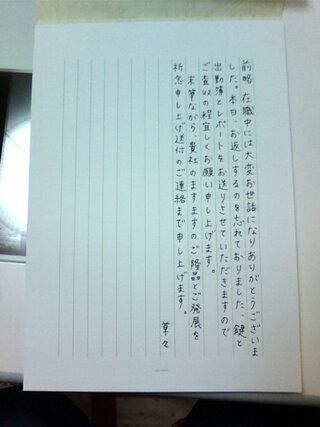 前略 在職中には大変お世話になりありがとうございま
した。本日、お返しするのを忘れておりました、鍵と
出勤簿とレポートをお送りさせていただきますので
ご査収の程宜しくお願い申し上げます。
末筆ながら、貴社のますますのご隆昌とご発展を
祈念申し上げ送付のご連絡まで申し上げます。
草々